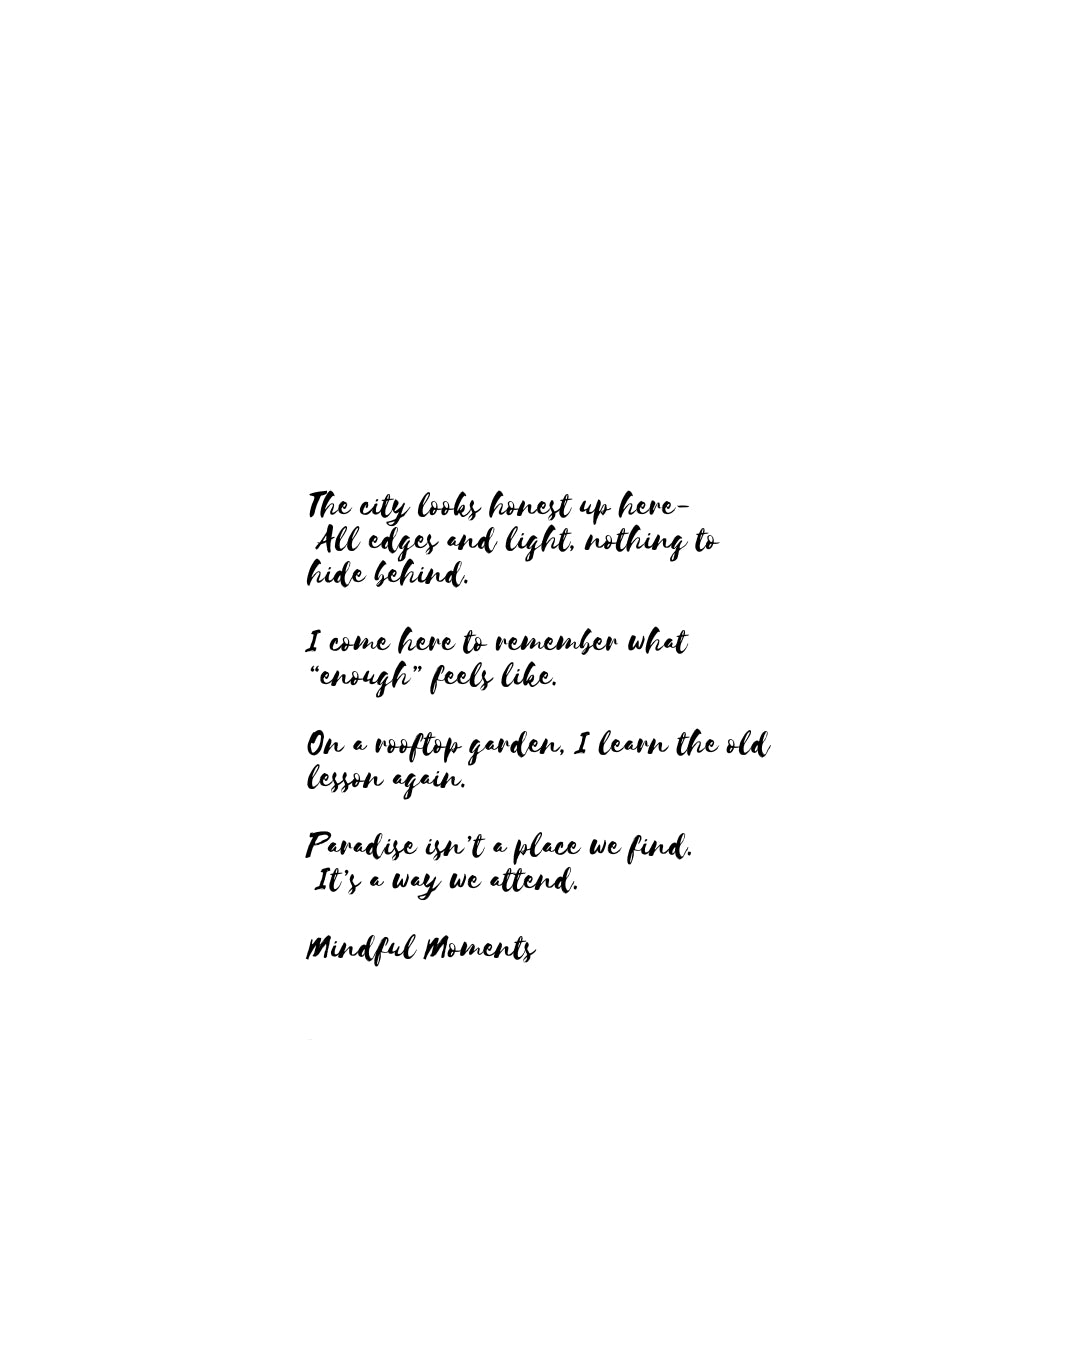 The city looks honest up here-
All edges and light, nothing to
hide behind.
I come here to remember what
“enough” feels like.
On a rooftop garden, I learn the old
lesson again.
Paradise isn’t a place we find.
It’s a way we attend.
Mindful Moments